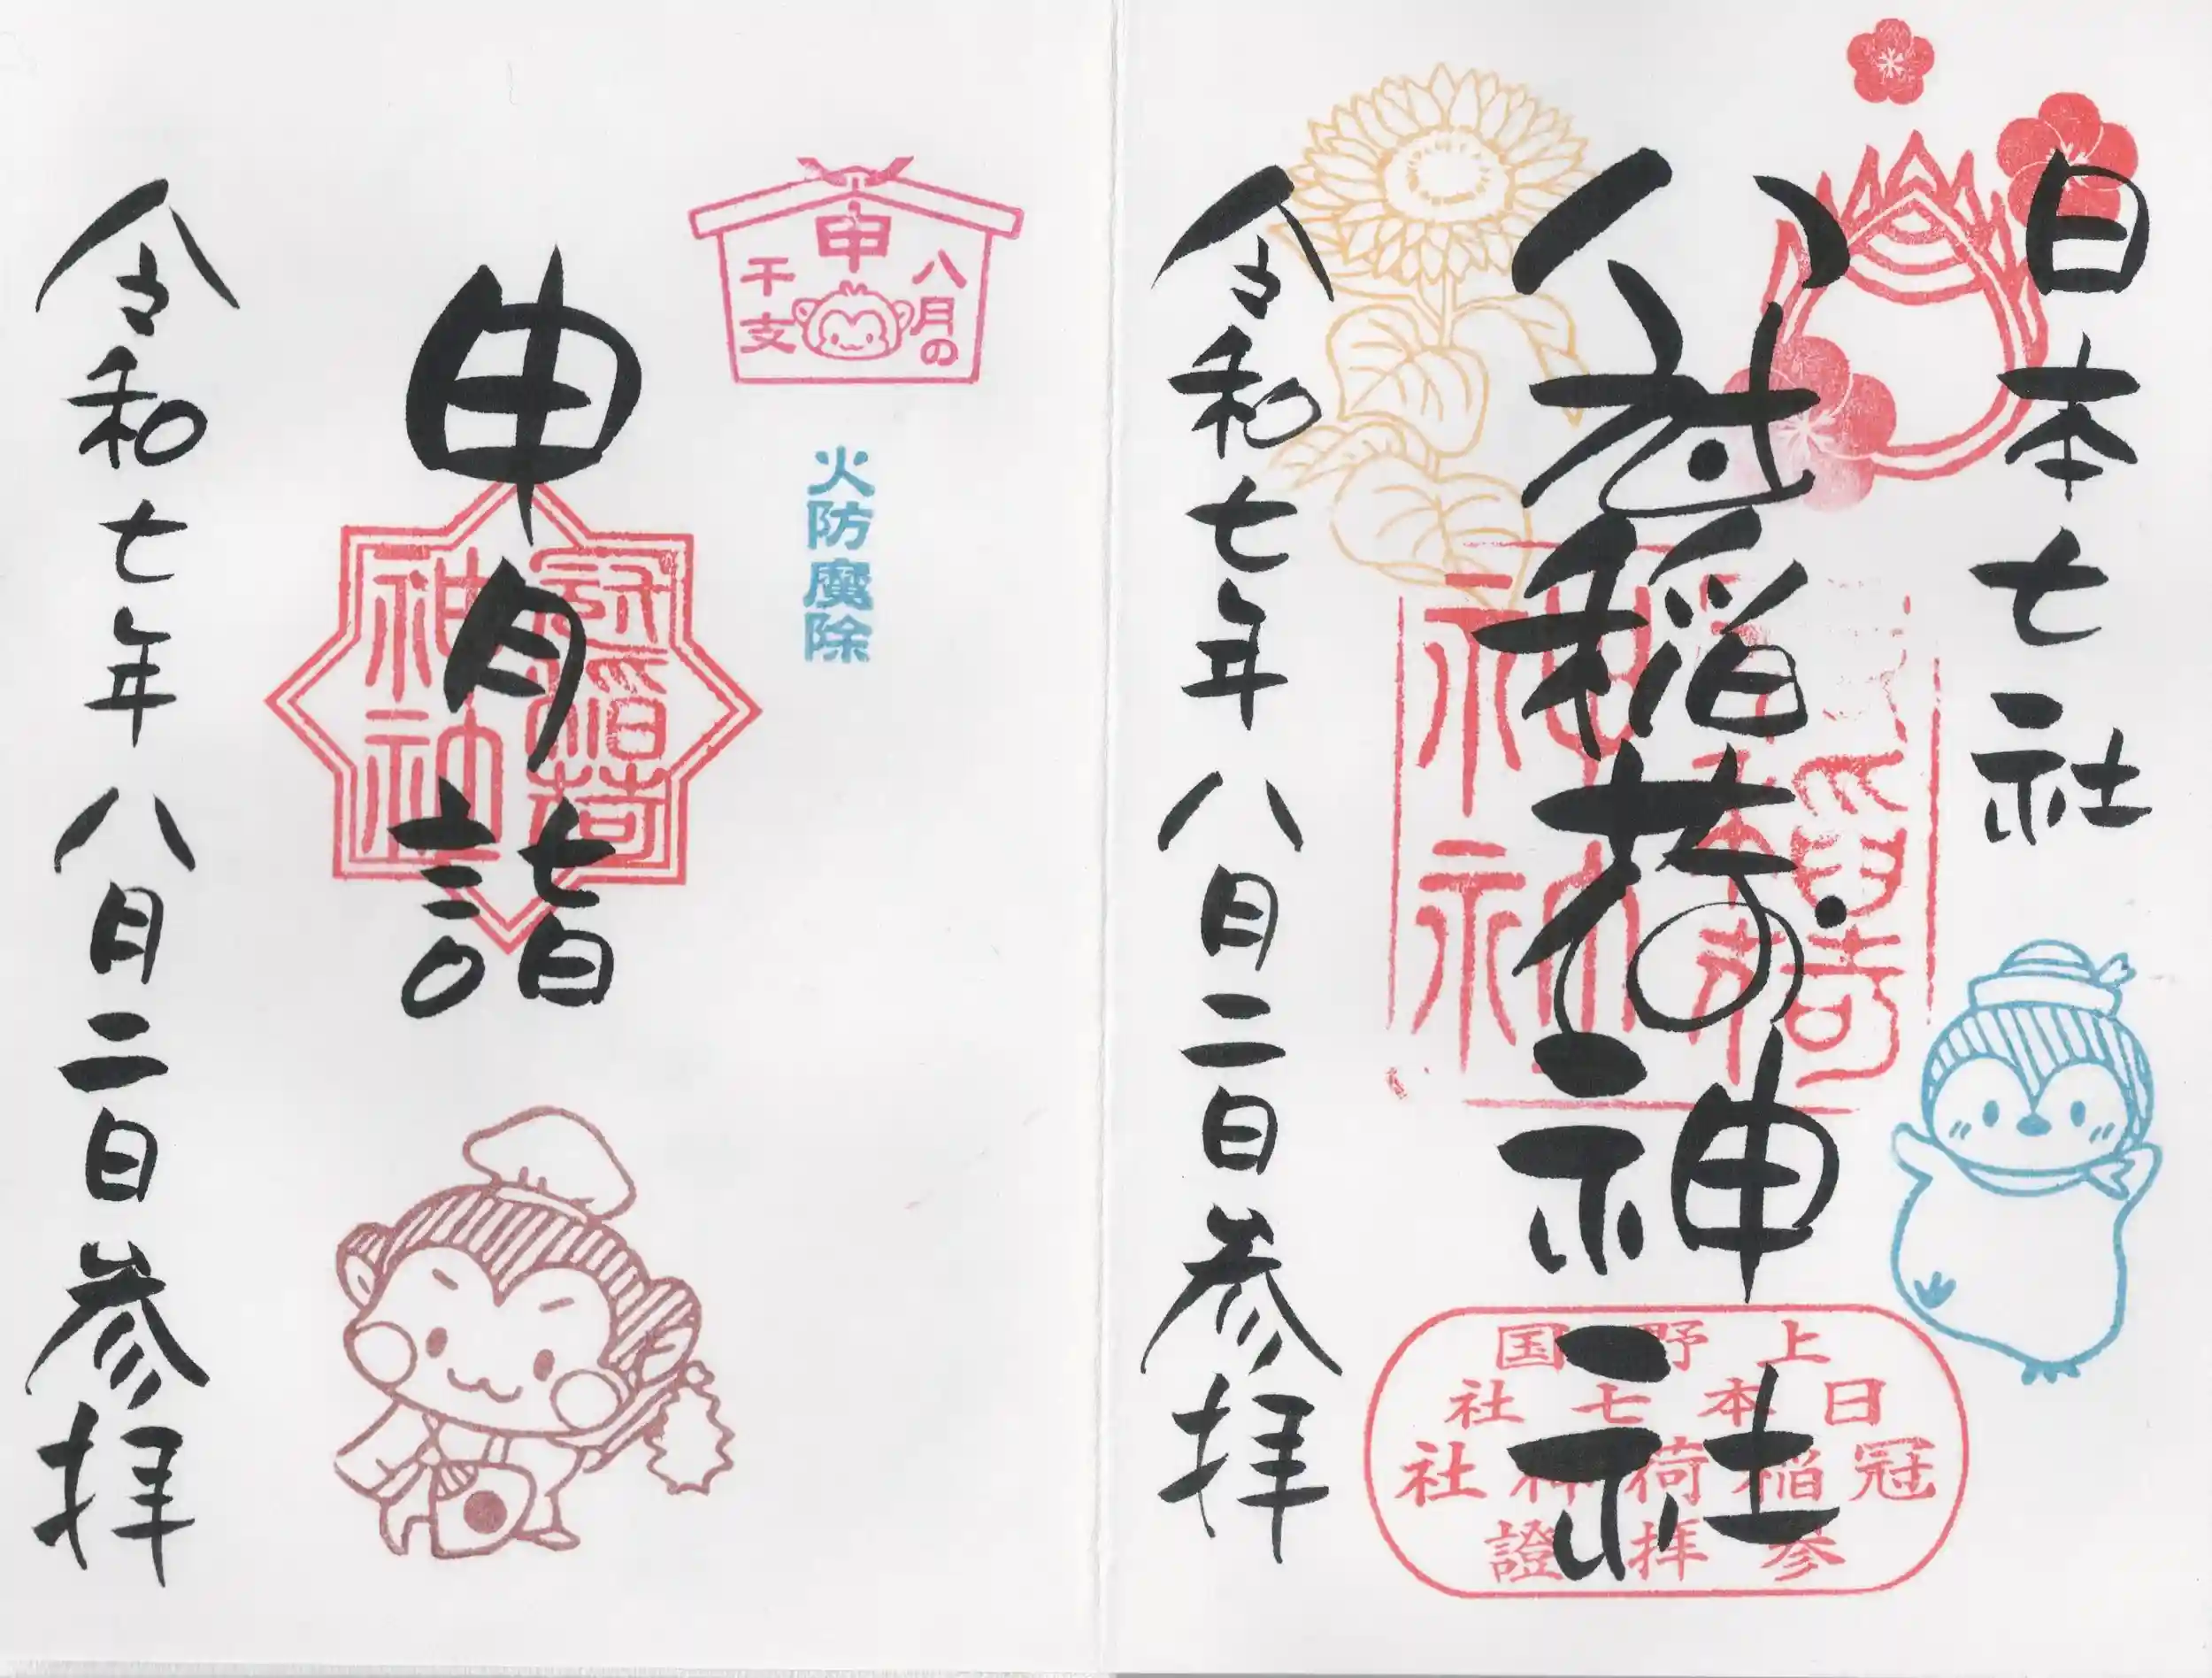 日本七社
冠稲荷神社
冠稲荷
神社
上野国
日本七社
冠稲荷神社
参拝證
令和七年八月二日参拝
八月の
申
干支
火防魔除
申月詣
冠稲荷
神社
令和七年八月二日参拝